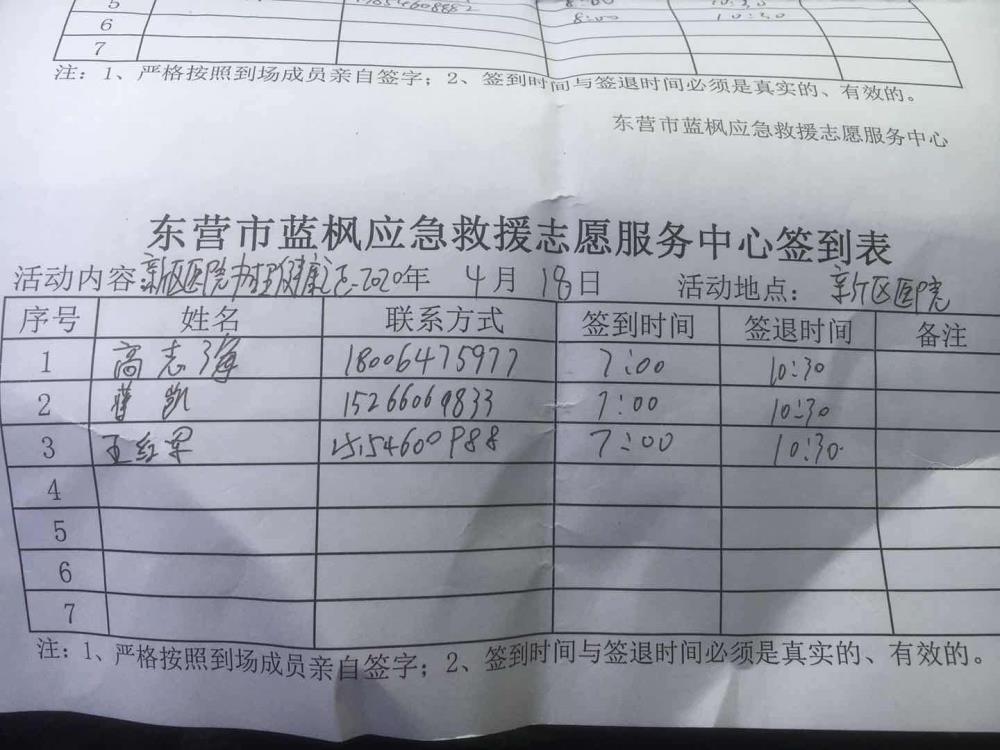 5 8:00 10:30
6 8:00 10:30
7
注：1、严格按照到场成员亲自签字；2、签到时间与签退时间必须是真实的、有效的。
东营市蓝枫应急救援志愿服务中心
东营市蓝枫应急救援志愿服务中心签到表
活动内容：新区医院 健康 2020年 4月 18日 活动地点：新区医院
序号 姓名 联系方式 签到时间 签退时间 备注
1 高志海 18006475977 7:00 10:30
2 凯 15266069833 7:00 10:30
3 王红军 15154600988 7:00 10:30
4
5
6
7
注：1、严格按照到场成员亲自签字；2、签到时间与签退时间必须是真实的、有效的。